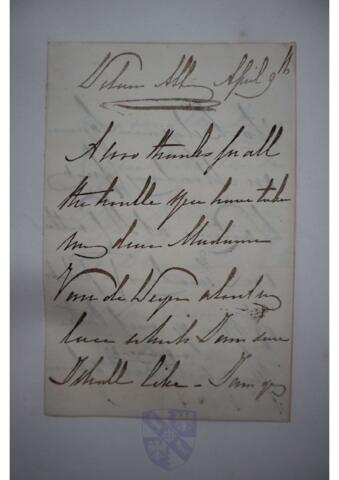 Woburn Abbey April 9th
A 1000 thanks for all
the trouble you have taken
my dear Madame
Van de Weyer about my
lace which I am sure
I shall like – I am